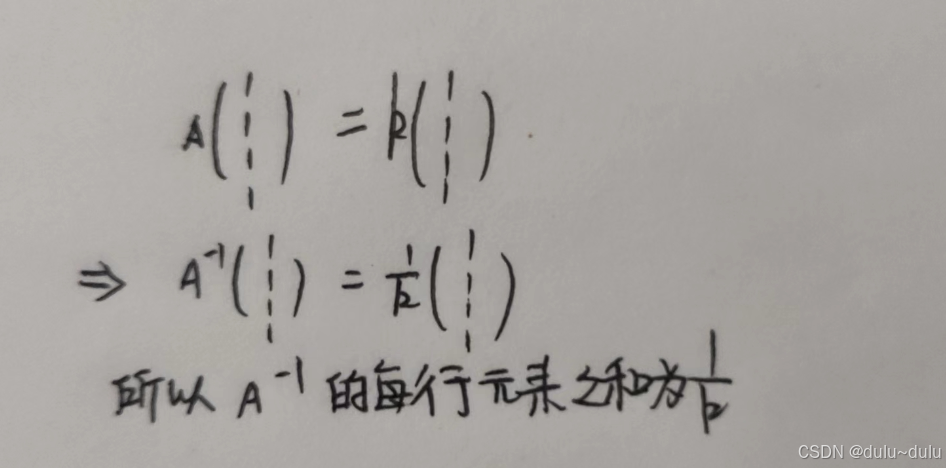 A(1 1 1 1) = k(1 1 1 1)
⇒ A⁻¹(1 1 1 1) = 1/k(1 1 1 1)
所以 A⁻¹ 的每行元素之和为 1/k
CSDN @dulu~dulu